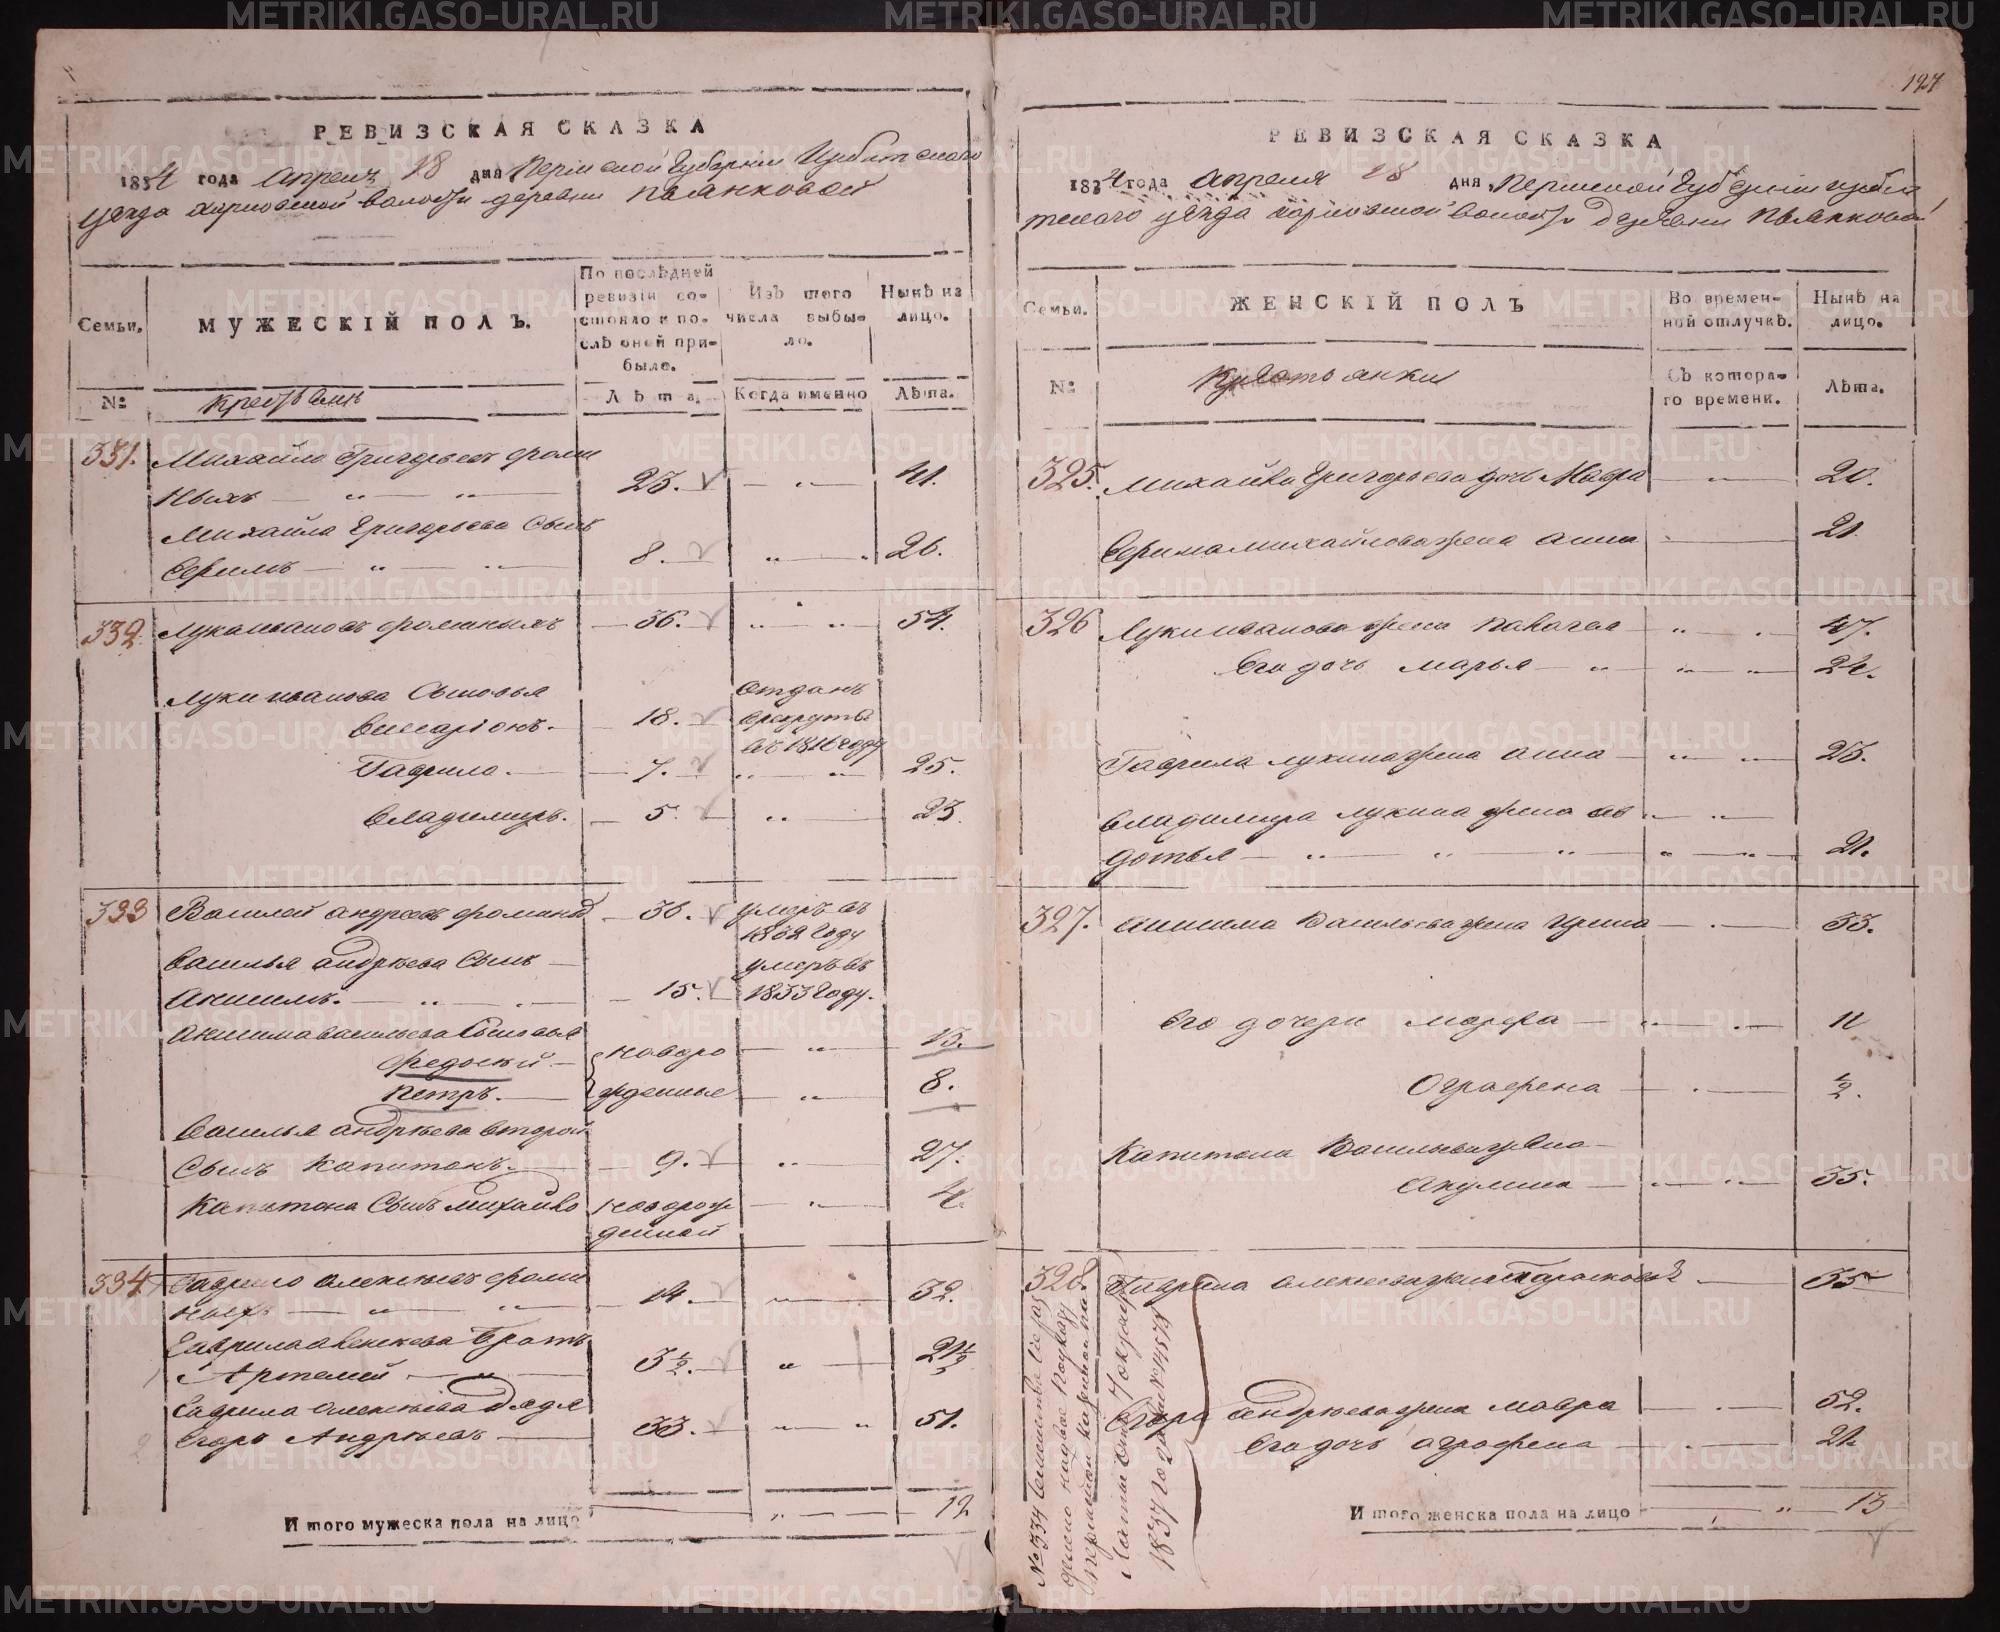 127
РЕВИЗСКАЯ СКАЗКА
1834 года апреля 18 дня Пермской Губернии Ирбитского
уезда харловской волости деревни пьянковой
Семьи.
МУЖЕСКІЙ ПОЛЪ.
По послѣдней ревизіи состояло и послѣ оней прибыло.
Изъ того числа выбыло.
Нынѣ на лицо.
№
Крестьяне
Лѣта.
Когда именно
Лѣта.
331. Михайло Григорьевъ фоми
ныхъ — 23. — 41.
Михайла Григорьева Сынъ
Ефимъ — 8. — 26.
332. Лука ивановъ фоминыхъ — 36. — 54.
Луки иванова Сыновья
Висарионъ. — 18. отданъ
врекруты
въ 1816 году
Гаврило. — 7. — 25.
Владимиръ. — 5. — 23.
333 Василей андреевъ фоминыхъ — 36. умеръ въ
году
Василья андрѣева Сынъ — умеръ въ
Анисимъ. — 15. 1833 году.
Анисима васильева Сыновья
Федосий — новоро — 13.
Петръ. — жденные — 8.
Василья андрѣева второй
Сынъ Капитонъ. — 9. — 27.
Капитона Сынъ михайло новорож — 4.
денной
334. Гаврило алексѣевъ фоми
ныхъ — 14. — 32.
Гаврила алексѣева Братъ
Артемей. — 3 1/2. — 21 1/2
Гаврила алексѣева Дядя
Егоръ Андрѣевъ — 33. — 51.
Итого мужеска пола на лицо — 12
РЕВИЗСКАЯ СКАЗКА
1834 года апреля 18 дня, Пермской Губернии ирби
тского уезда харловской волости деревни пьянковой
Семьи.
ЖЕНСКІЙ ПОЛЪ
Во временной отлучкѣ.
Нынѣ на лицо.
№
Крестьянки
Съ котораго времени.
Лѣта.
325. Михайла Григорьева дочь Мавра — 20.
Ефима михайлова жена анна — 21
326 Луки иванова жена пелагея — 47.
Его дочь марья — 24.
Гаврила лукина жена анна — 23.
Владимира лукина жена ав
дотья — 21.
327. Анисима Васильева жена ирина — 33.
Его дочери марфа — 11
Ографена — 1/2.
Капитона Васильева жена
Акулина — 35.
328. Гаврила алексеева жена Парасковья — 35
Егора андрѣева жена мавра — 52.
Его дочь аграфена — 21.
Итого женска пола на лицо — 13
№ 334 семейство сіе раз
делено надвое поуказу
пермской казенной па
латы отъ 7 октября
1837 года за № 14578
METRIKI.GASO-URAL.RU